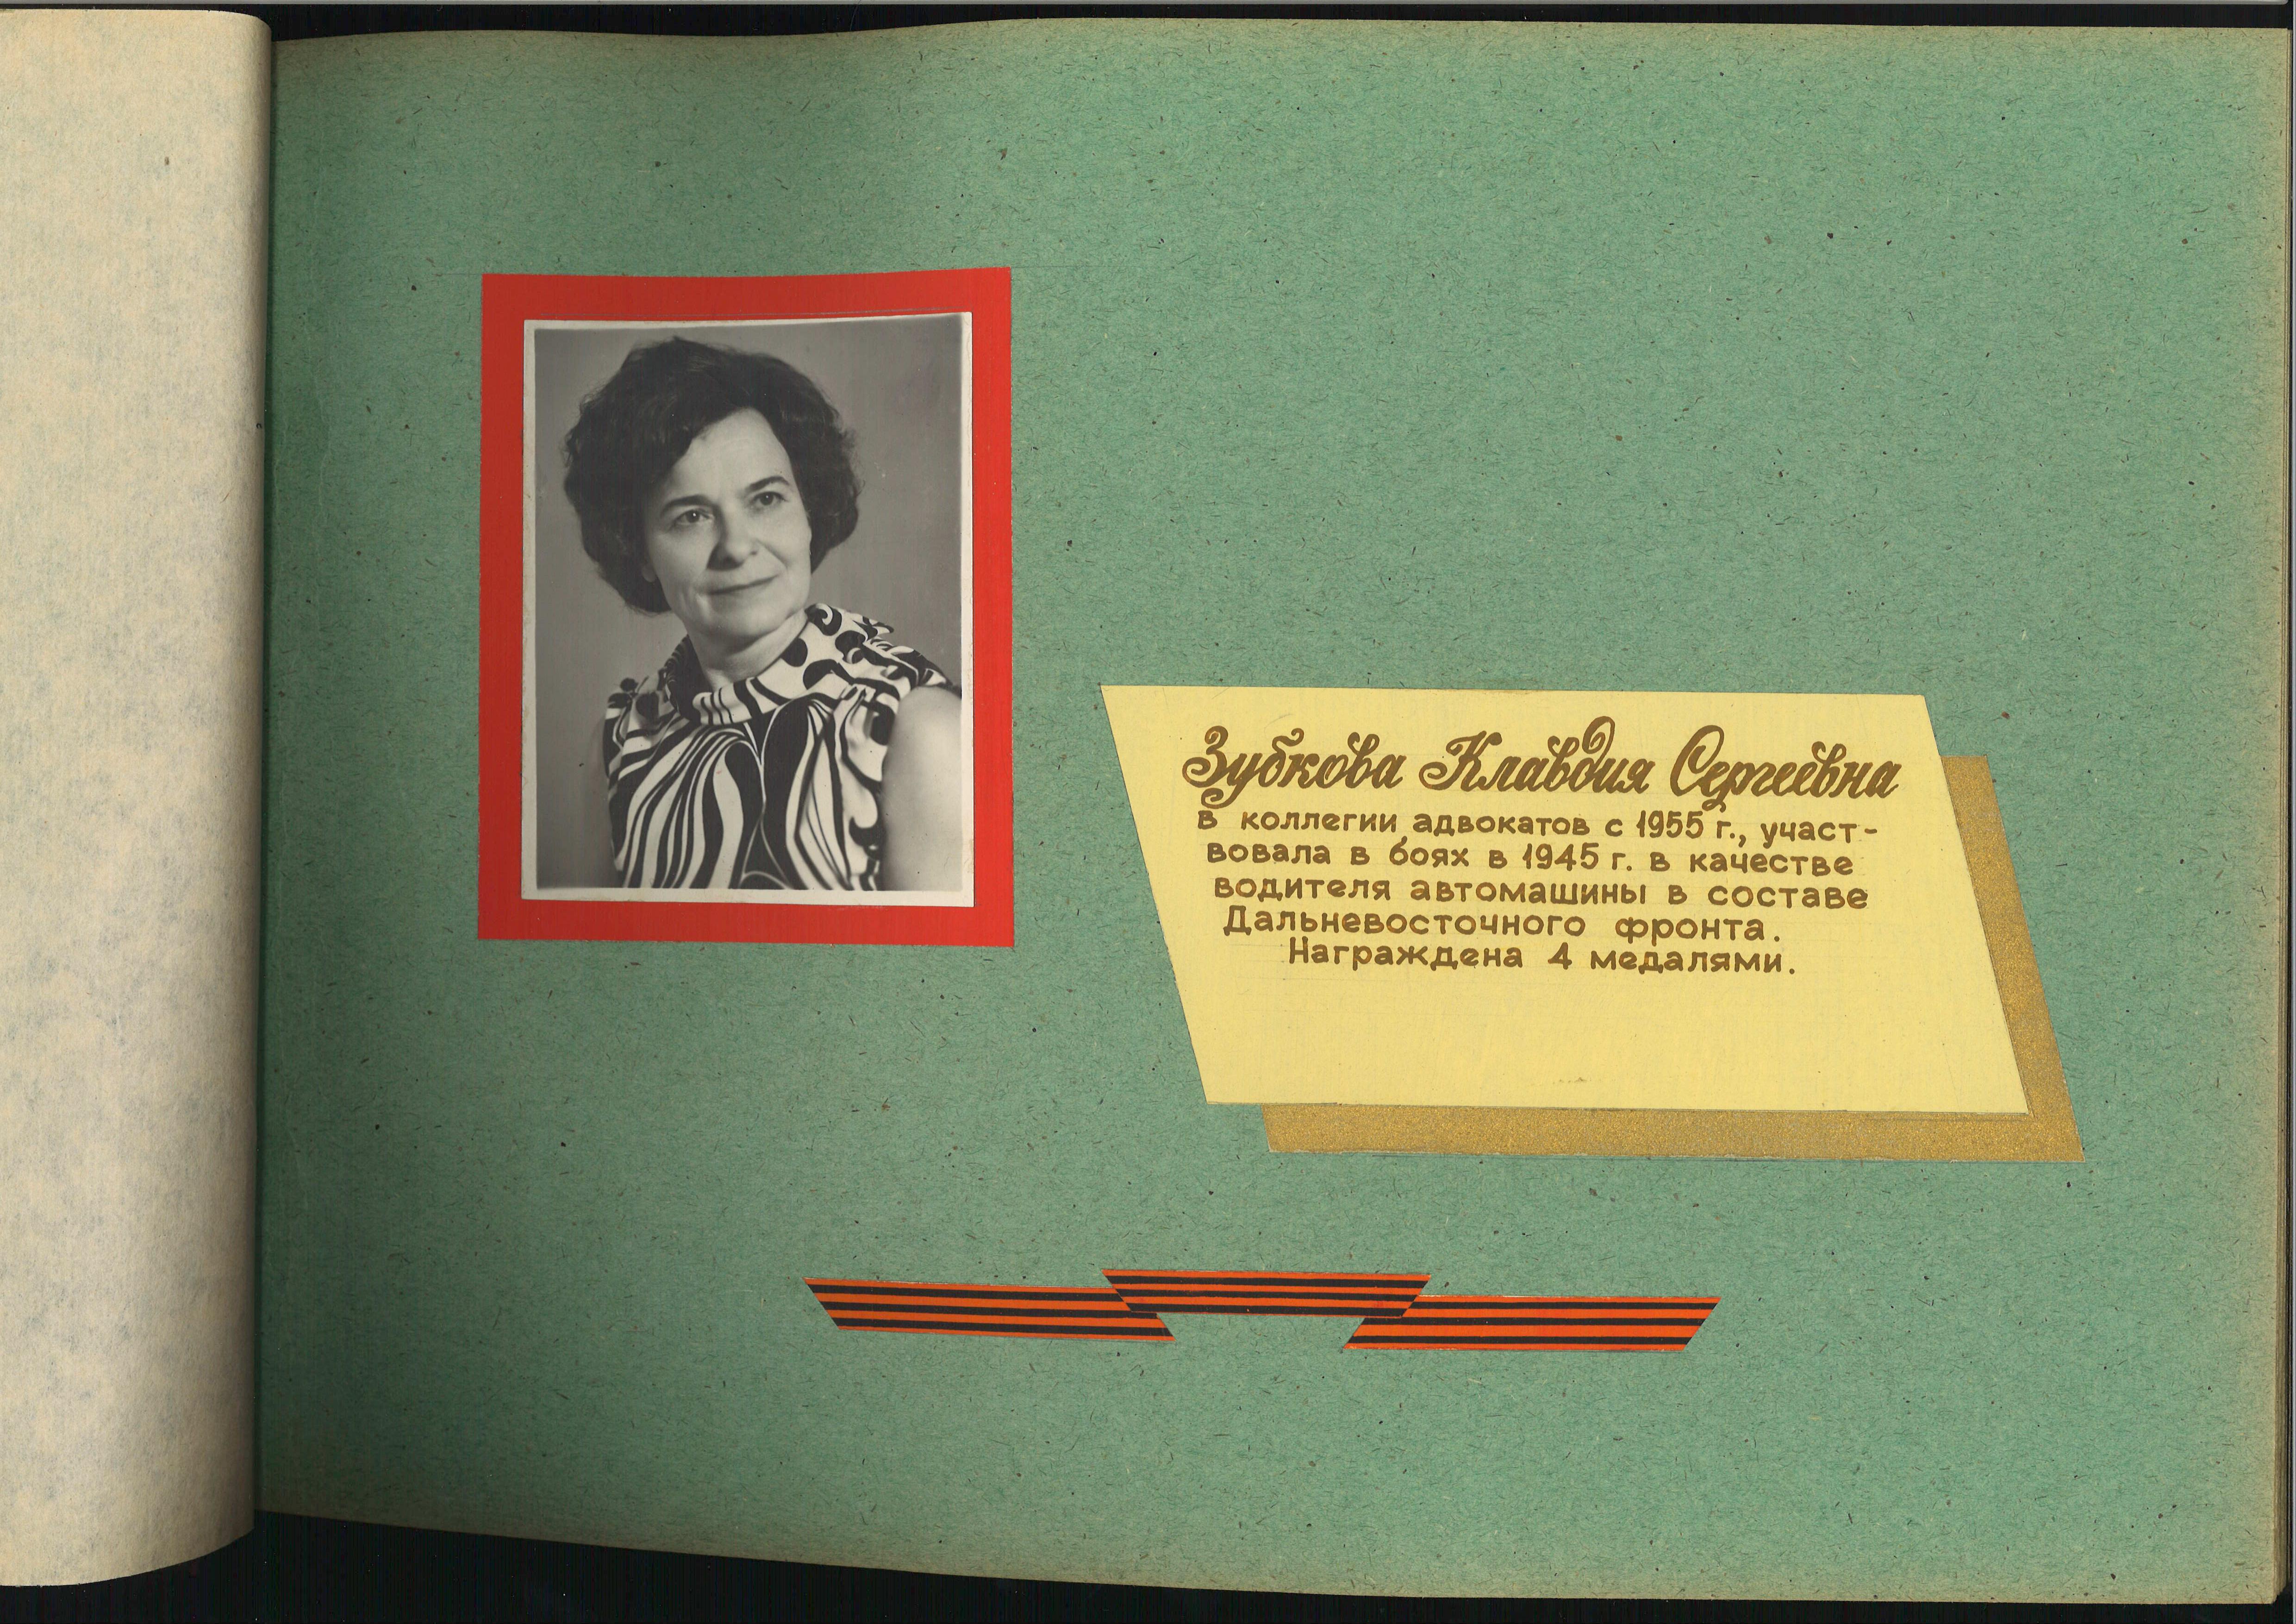 Зубкова Клавдия Сергеевна
в коллегии адвокатов с 1955 г., участ-
вовала в боях в 1945 г. в качестве
водителя автомашины в составе
Дальневосточного фронта.
Награждена 4 медалями.